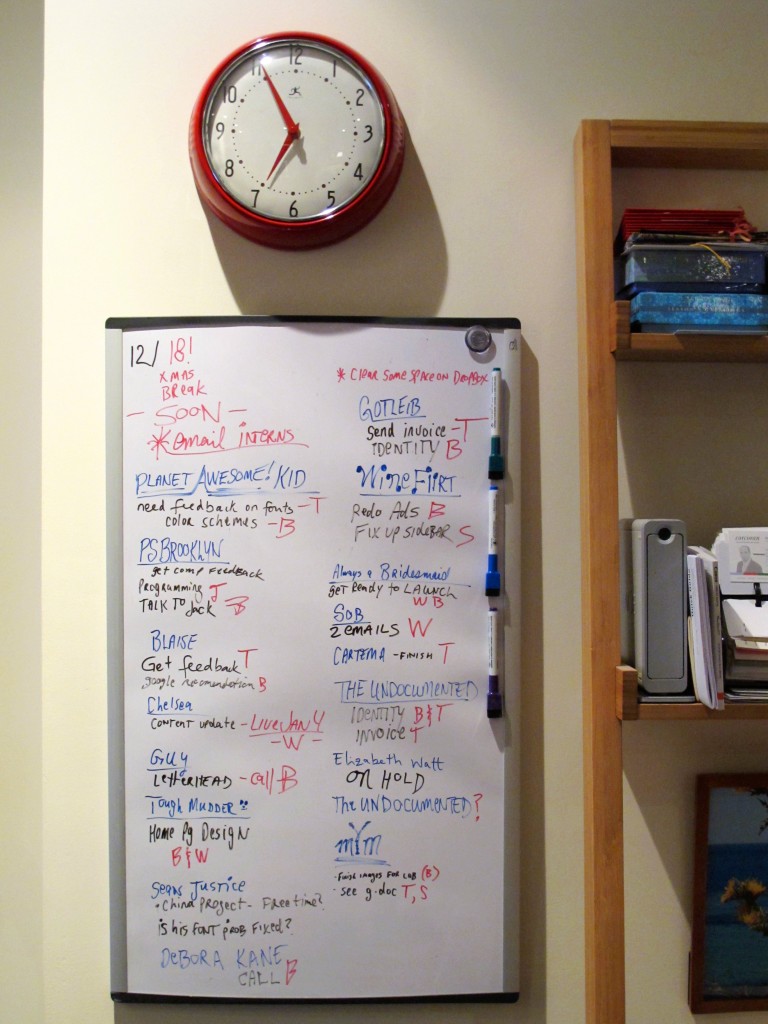 12
1
2
3
4
5
6
7
8
9
10
11
12/18!
XMAS
BREAK
- SOON -
*email INTERNS
PLANET AWESOME! KID
need feedback on fonts - T
color schemes - B
PSBROOKLYN
get comp FEEDBACK
Programming J
TALK TO Jack B
BLAISE
Get feedback T
google recomendation B
Chelsea
CONTENT update - LIVE JAN 4
- W -
GUY
LetterHEAD - Call B
Tough MUDDER
Home Pg Design
B & W
Seans Justice
• China project - Free time?
is his FONT PROB FIXED?
DeBORA KANE
CALL B
* CLEAR SOME SPACE ON DROPBOX
GOTLEIB
Send invoice - T
IDENTITY B
Wine Flirt
Redo Ads B
FIX UP SIDEBAR S
Always a Bridesmaid
GET Ready to LAUNCH
W B
SOB
2 EMAILS W
CARTEMA - FINISH T
THE UNDOCUMENTED
IDENTITY B & T
INVOICE T
Elizabeth Watt
ON HOLD
The UNDOCUMENTED?
mYm
• Finish images FOR LOB (B)
• see g.doc T, S